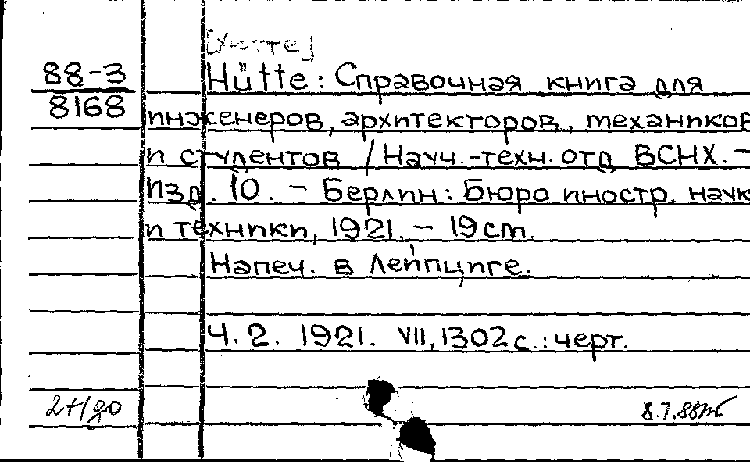 [Хютте]
88-3
8168
Hütte: Справочная книга для
инженеров, архитекторов, механиков
и студентов / Науч.-техн. отд ВСНХ. –
Изд. 10. – Берлин: Бюро иностр. наук
и техники, 1921. – 19 см.
Напеч. в Лейпциге.
Ч. 2. 1921. VII, 1302 с.: черт.
8.7.88